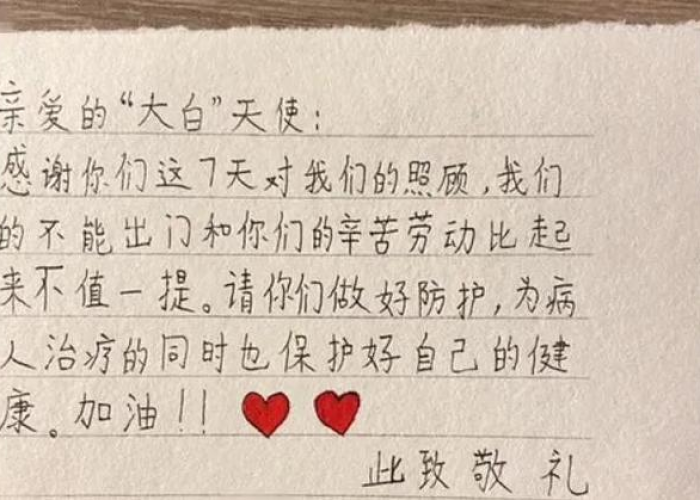 亲爱的“大白”天使：
感谢你们这7天对我们的照顾，我们
的不能出门和你们的辛苦劳动比起
来不值一提。请你们做好防护，为病
人治疗的同时也保护好自己的健
康。加油！！
此致敬礼